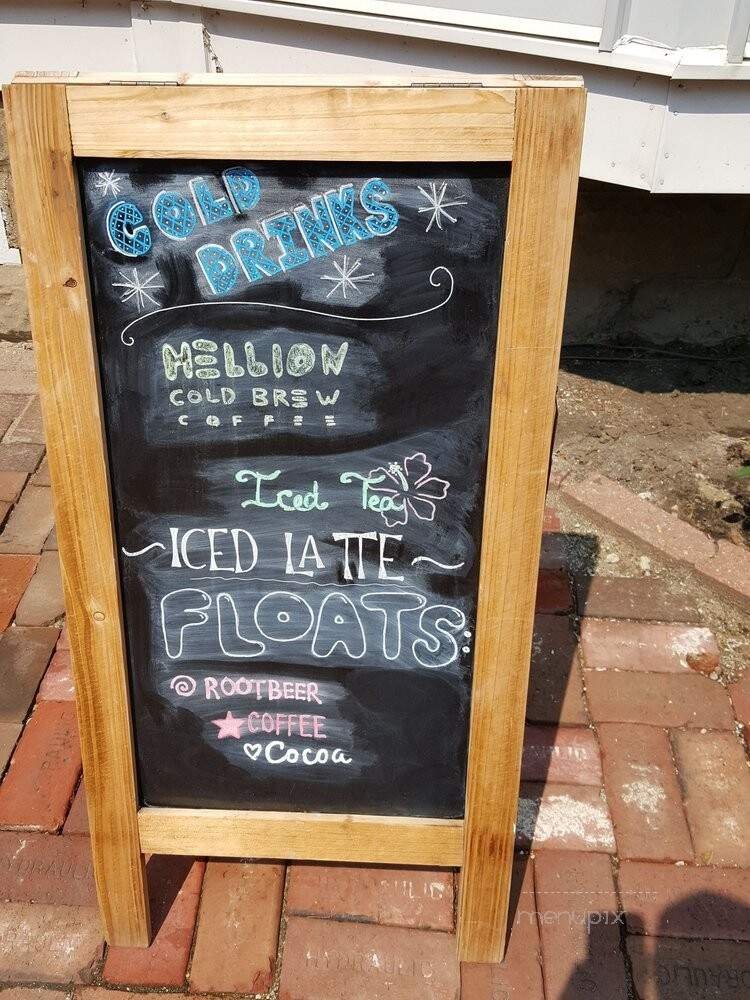 COLD
DRINKS
HELLION
COLD BREW
COFFEE
Iced Tea
~ICED LATTE~
FLOATS:
ROOTBEER
COFFEE
Cocoa
HYDRAULIC
HYDRAULIC
menupix